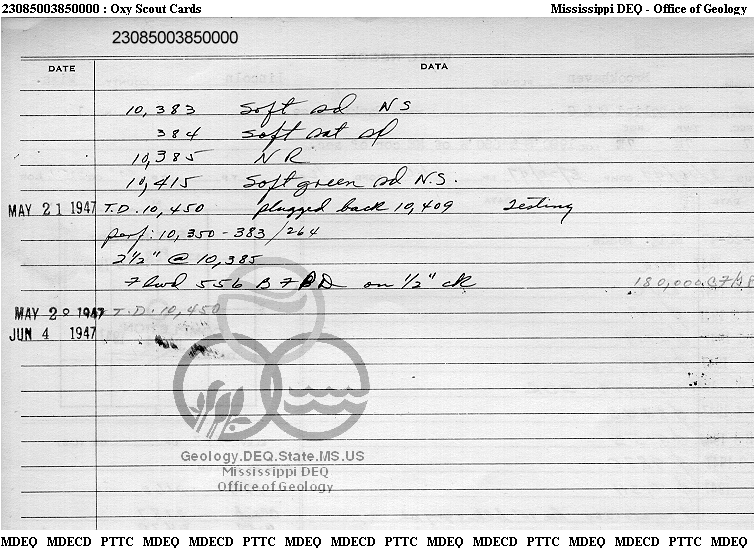 23085003850000 : Oxy Scout Cards Mississippi DEQ - Office of Geology
23085003850000
DATE DATA
10,383 Soft sd N S
384 Soft sat sd
10,385 N R
10,415 Soft green sd N.S.
MAY 21 1947 T.D. 10,450 plugged back 10,409 Testing
perf: 10,350-383/264
2½" @ 10,385
Flwd 556 B F PD on ½" ck 180,000 CF/
MAY 29 1947 T.D. 10,450
JUN 4 1947
Geology.DEQ.State.MS.US
Mississippi DEQ
Office of Geology
MDEQ MDECD PTTC MDEQ MDECD PTTC MDEQ MDECD PTTC MDEQ MDECD PTTC MDEQ MDECD PTTC MDEQ